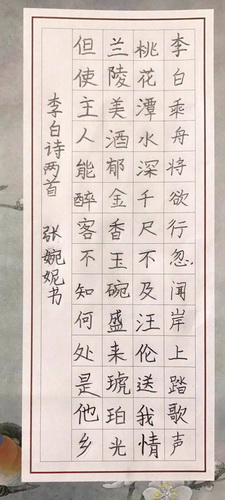 李白乘舟将欲行忽闻岸上踏歌声
桃花潭水深千尺不及汪伦送我情
兰陵美酒郁金香玉碗盛来琥珀光
但使主人能醉客不知何处是他乡
李白诗两首 张婉妮书